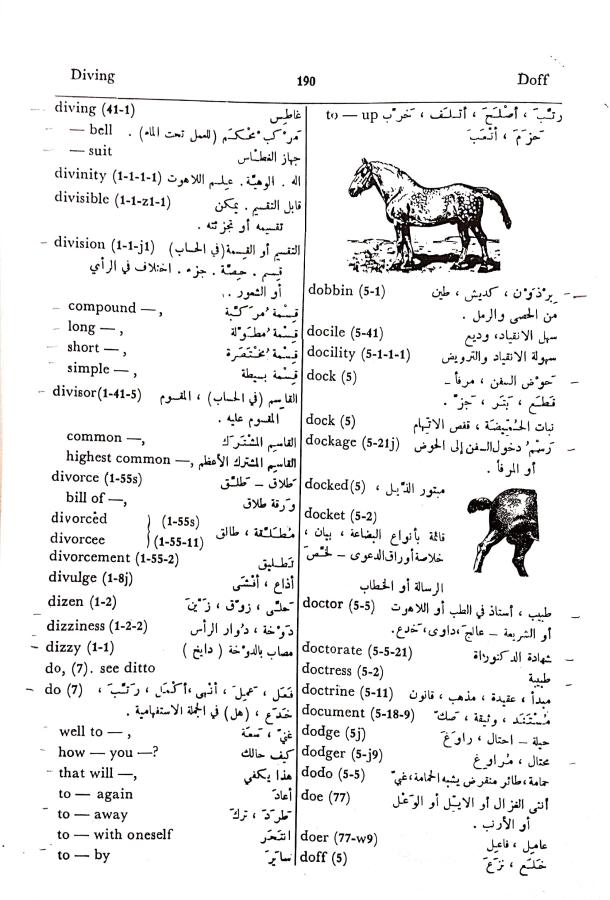 Diving 190 Doff
diving (41-1) غاطس
— bell مركب محكم (للعمل تحت الماء) .
— suit جهاز الغطاس
divinity (1-1-1-1) اله . الوهية . علم اللاهوت
divisible (1-1-z1-1) قابل التقسيم . يمكن
تقسيمه أو تجزئته .
division (1-1-j1) التقسيم أو القسمة (في الحساب)
قسم . حصة . جزء . اختلاف في الرأي
أو الشعور . .
compound —, قسمة مركبة
long —, قسمة مطولة
short —, قسمة مختصرة
simple —, قسمة بسيطة
divisor (1-41-5) القاسم (في الحساب) ، المقسوم
المقسوم عليه .
common —, القاسم المشترك
highest common —, القاسم المشترك الأعظم
divorce (1-55s) طلاق – طلق
bill of —, ورقة طلاق
divorced } (1-55s)
divorcee } (1-55-11) مطلقة ، طالق
divorcement (1-55-2) تطليق
divulge (1-8j) أذاع ، أفشى
dizen (1-2) حلى ، زوق ، زين
dizziness (1-2-2) دوخة ، دوار الرأس
dizzy (1-1) مصاب بالدوخة ( دايخ )
do, (7). see ditto
do (7) فعل ، عمل ، أنهى ، أكمل ، رتب ،
خدع ، (هل) في الجملة الاستفهامية .
well to —, غني ، سعة
how — you —? كيف حالك
that will —, هذا يكفي
to — again أعاد
to — away طرد ، ترك
to — with oneself انتحر
to — by ساير
to — up رتب ، أصلح ، أتلف ، خرب
حزم ، أتعب
dobbin (5-1) برذون ، كديش ، طين
من الحصى والرمل .
docile (5-41) سهل الانقياد، وديع
docility (5-1-1-1) سهولة الانقياد والترويض
dock (5) حوض السفن ، مرفأ –
قطع ، بتر ، جز .
dock (5) نبات الحميضة ، قفص الاتهام
dockage (5-21j) رسم دخول السفن إلى الحوض
أو المرفأ .
docked (5) مبتور الذيل ،
docket (5-2)
قائمة بأنواع البضاعة ، بيان ،
خلاصة أوراق الدعوى – لخص
الرسالة أو الخطاب
doctor (5-5) طبيب ، أستاذ في الطب أو اللاهوت
أو الشريعة – عالج ، داوى ، خدع .
doctorate (5-5-21) شهادة الدكتوراة
doctress (5-2) طبيبة
doctrine (5-11) مبدأ ، عقيدة ، مذهب ، قانون
document (5-18-9) مستند ، وثيقة ، صك
dodge (5j) حيلة – احتال ، راوغ
dodger (5-j9) محتال ، مراوغ
dodo (5-5) حمامة ، طائر منقرض يشبه الحمامة ، غبي
doe (77) أنثى الغزال أو الايل أو الوعل
أو الأرنب .
doer (77-w9) عامل ، فاعل
doff (5) خلع ، نزع